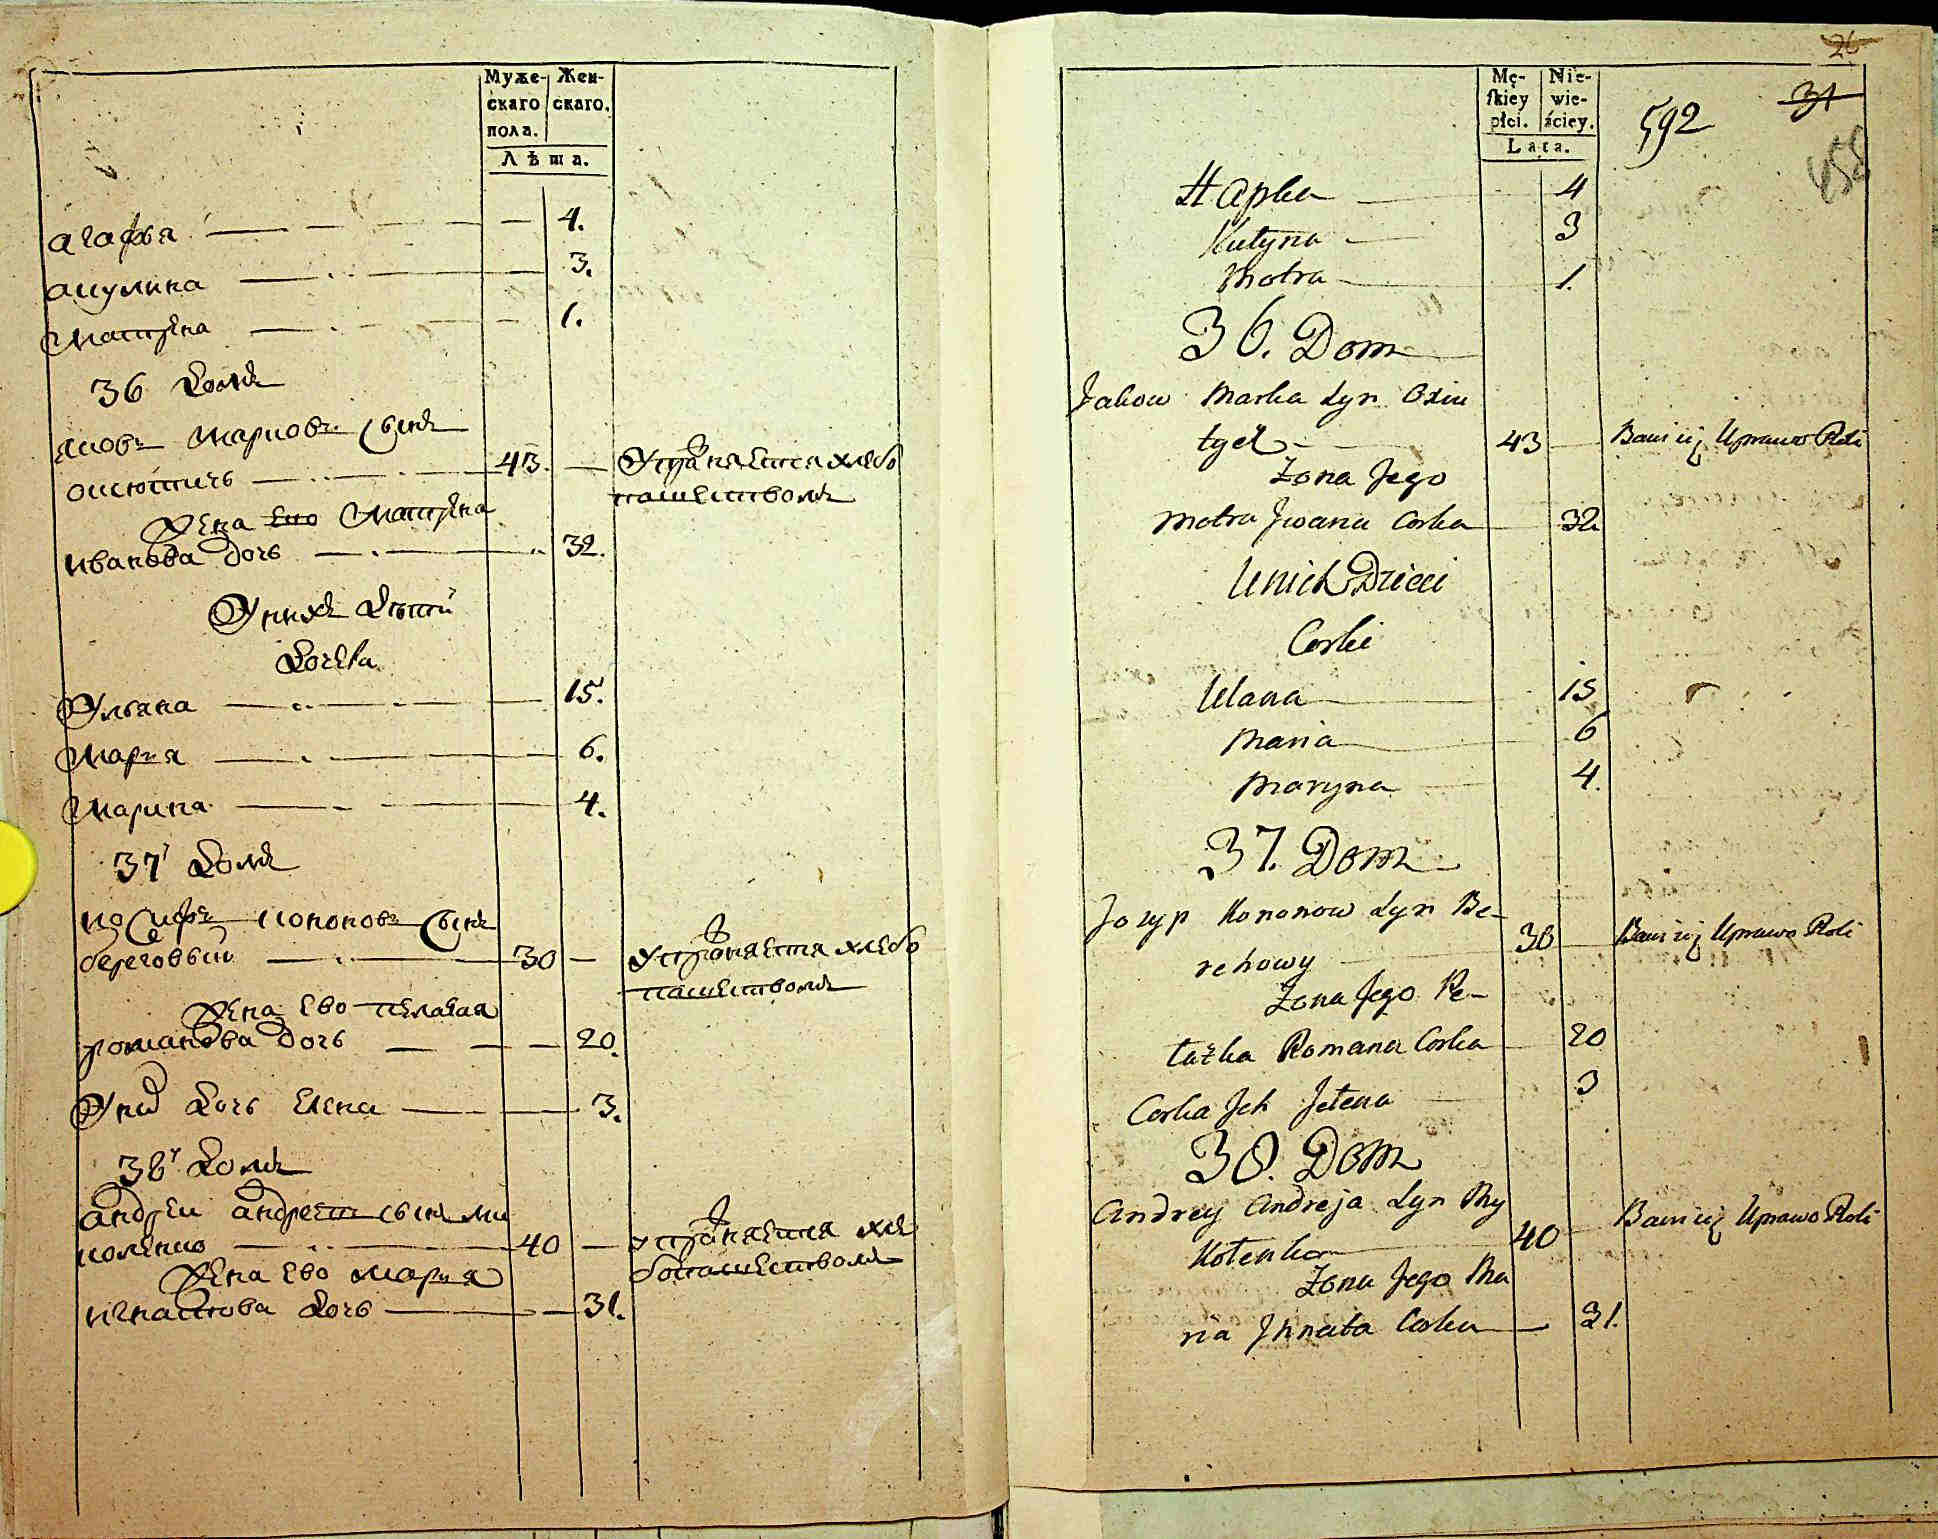 Муже-
скаго
пола.
Жен-
скаго.
Лѣта.
агафія 4.
акулина 3.
Матрена 1.
36 Домъ
яковъ Марковъ сынъ
оксютичь 43. Упражняется хлебо
пашествомъ
Жена его Матрена
иванова дочь 32.
У нихъ дѣти
Дочери
Ульяна 15.
Мария 6.
Марина 4.
37 Домъ
иосифъ кононовъ сынъ
береговый 30 упражняется хлебо
пашествомъ
Жена ево пелагея
романова дочь 20.
У них Дочь Елена 3.
38 Домъ
андреи андреевъ сынъ ми
коленко 40 упражняется хле
бопашествомъ
Жена ево мария
игнатова дочь 31.
26
31
592
458
Mę-
skiey
płci.
Nie-
wie-
ściey.
Lata.
Hapka 4
Kulyna 3
Motra 1.
36. Dom
Jakow Marka Syn Oxiu
tycz 43 Bawi się Uprawo Roli
Zona Jego
Motra Iwana Corka 32
U nich Dzieci
Corki
Ulana 15
Maria 6
Maryna 4.
37. Dom
Jozyp Kononow Syn Be-
rehowy 30 Bawi się Uprawo Roli
Zona Jego Pe-
lażka Romana Corka 20
Corka Ich Jelena 3
38. Dom
Andrey Andreja Syn My
Kolenko 40 Bawi się Uprawo Roli
Zona Jego Ma
ria Ihnata Corka 31.